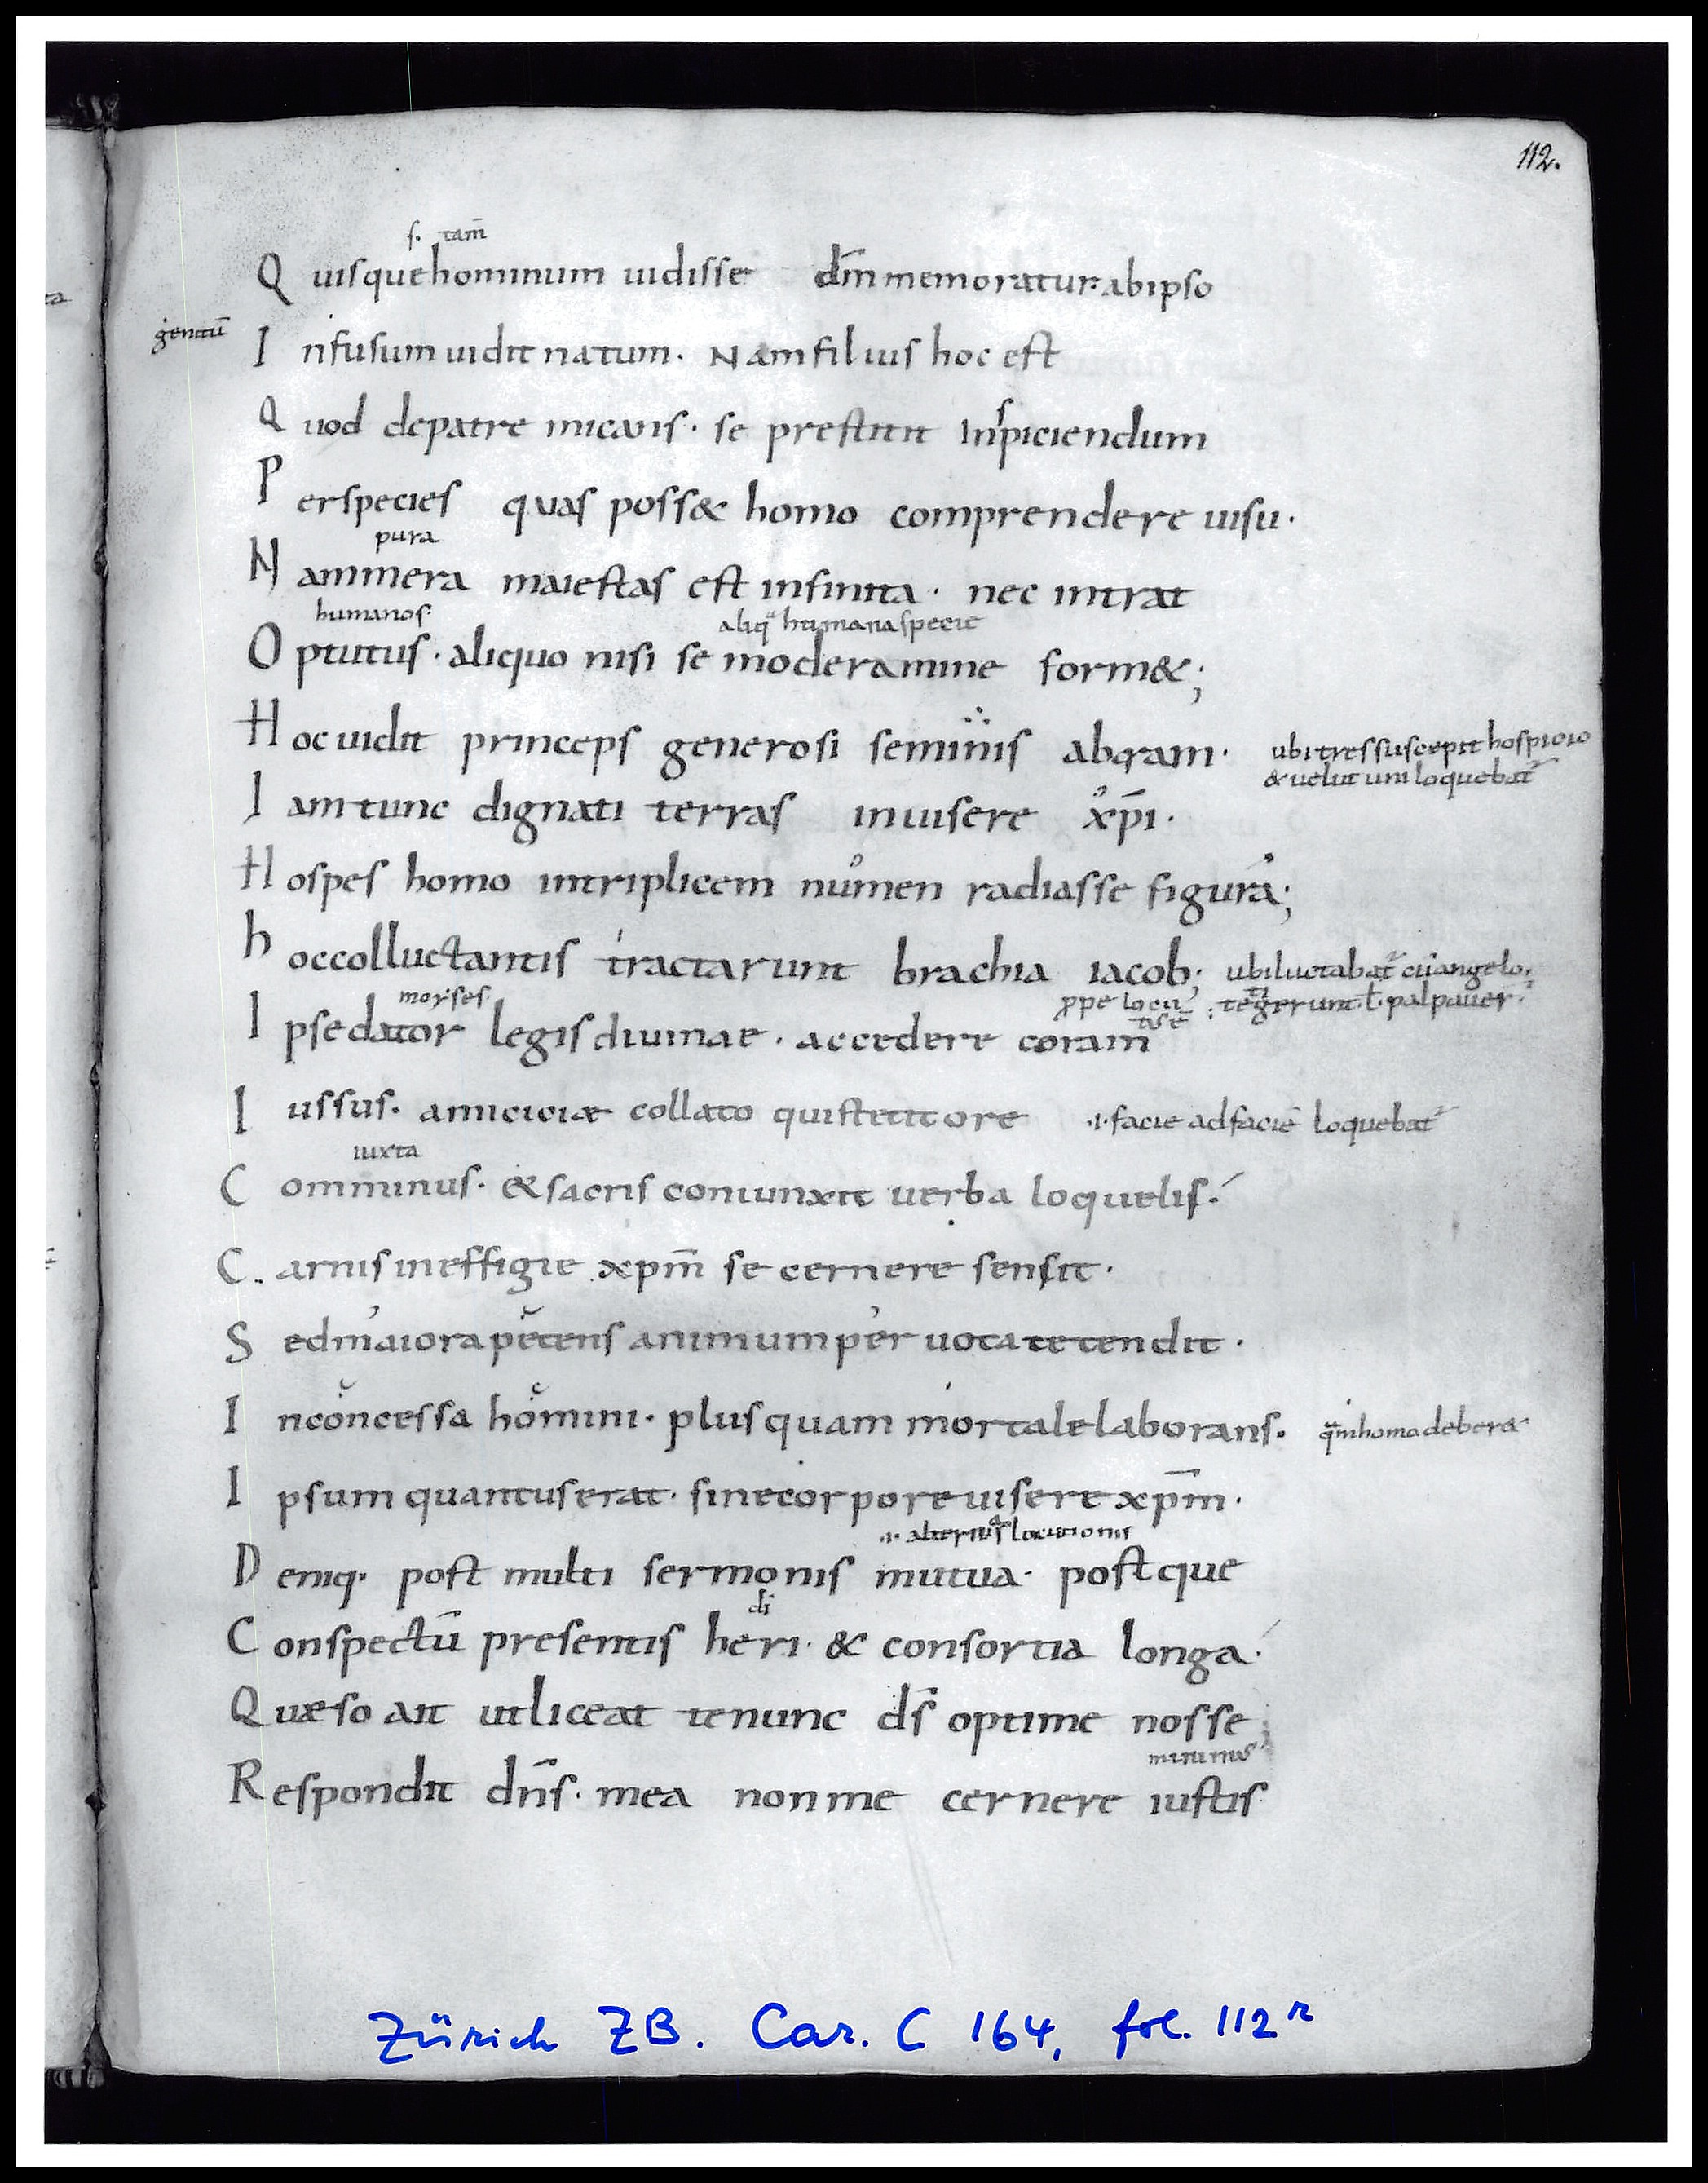 112.
s. tam̄
Quisque hominum uidisse dm̄ memoratur ab ipso
genitū
Infusum uidit natum. Nam filius hoc est
Quod depatre micans. se prestitit Inspiciendum
Perspecies quas poss& homo comprendere uisu.
pura
Nammera maiestas est infinita. nec intrat
humanos aliq̄ humana specie
Optutus. aliquo nisi se moderamine form&;
Hoc uidit princeps generosi seminis abram. ubi tres suscepit hospicio
& uelut uni loquebat̄
Iam tunc dignati terras inuisere xp̄i.
Hospes homo intriplicem numen radiasse figurā;
hoc colluctantis tractarunt brachia iacob; ubi luctabat̄ cū angelo.
moyses ꝓpe locū tegerunt ł palpauer̄
Ipse dator legis diuinae. accedere coram
Iussus. amiciciae collato qui stetit ore .i. facie ad faciē loquebat̄
iuxta
Comminus. & sacris coniunxit uerba loquelis.
Carnis in effigie xpm̄ se cernere sensit.
Sed maiora petens animum per uota tetendit.
Inconcessa homini. plus quam mortale laborans. q̄m homo deber&
Ipsum quantus erat. sine corpore uisere xpm̄.
.i. alterius locutionis
Deniq. post multi sermonis mutua. postque
di
Conspectū presentis heri. & consortia longa.
Quaeso ait ut liceat te nunc ds̄ optime nosse
Respondit dn̄s. mea non me cernere iustis
Zürich ZB. Car. C 164, fol. 112r